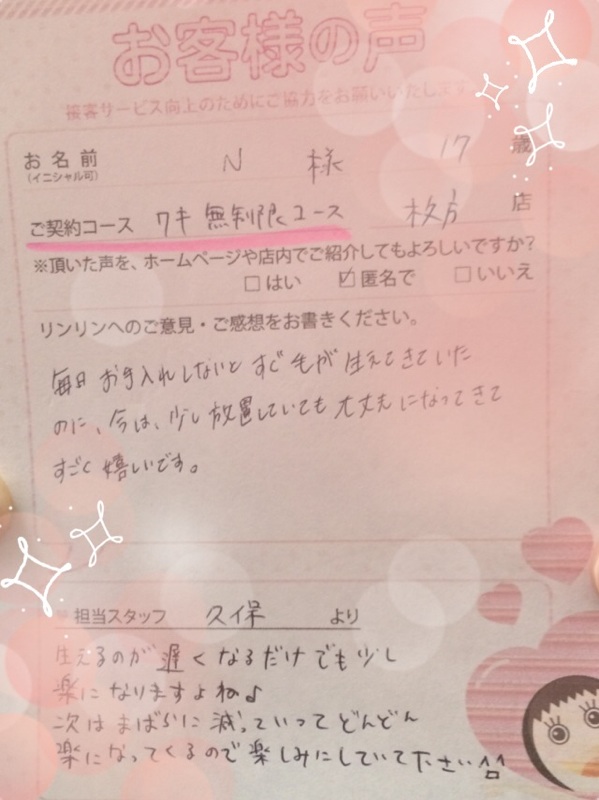 お客様の声
接客サービス向上のためにご協力をお願いいたします
お名前 N 様 17 歳
(イニシャル可)
ご契約コース ワキ 無制限コース 枚方 店
※頂いた声を、ホームページや店内でご紹介してもよろしいですか?
□はい ☑匿名で □いいえ
リンリンへのご意見・ご感想をお書きください。
毎日 お手入れしないと すぐ 毛が 生えてきていた
のに、今は、少し 放置していても 大丈夫 になってきて
すごく 嬉しいです。
担当スタッフ 久保 より
生えるのが 遅くなるだけでも少し
楽になりますよね♪
次は まばらに 減っていって どんどん
楽になってくるので 楽しみにしていて下さい^^